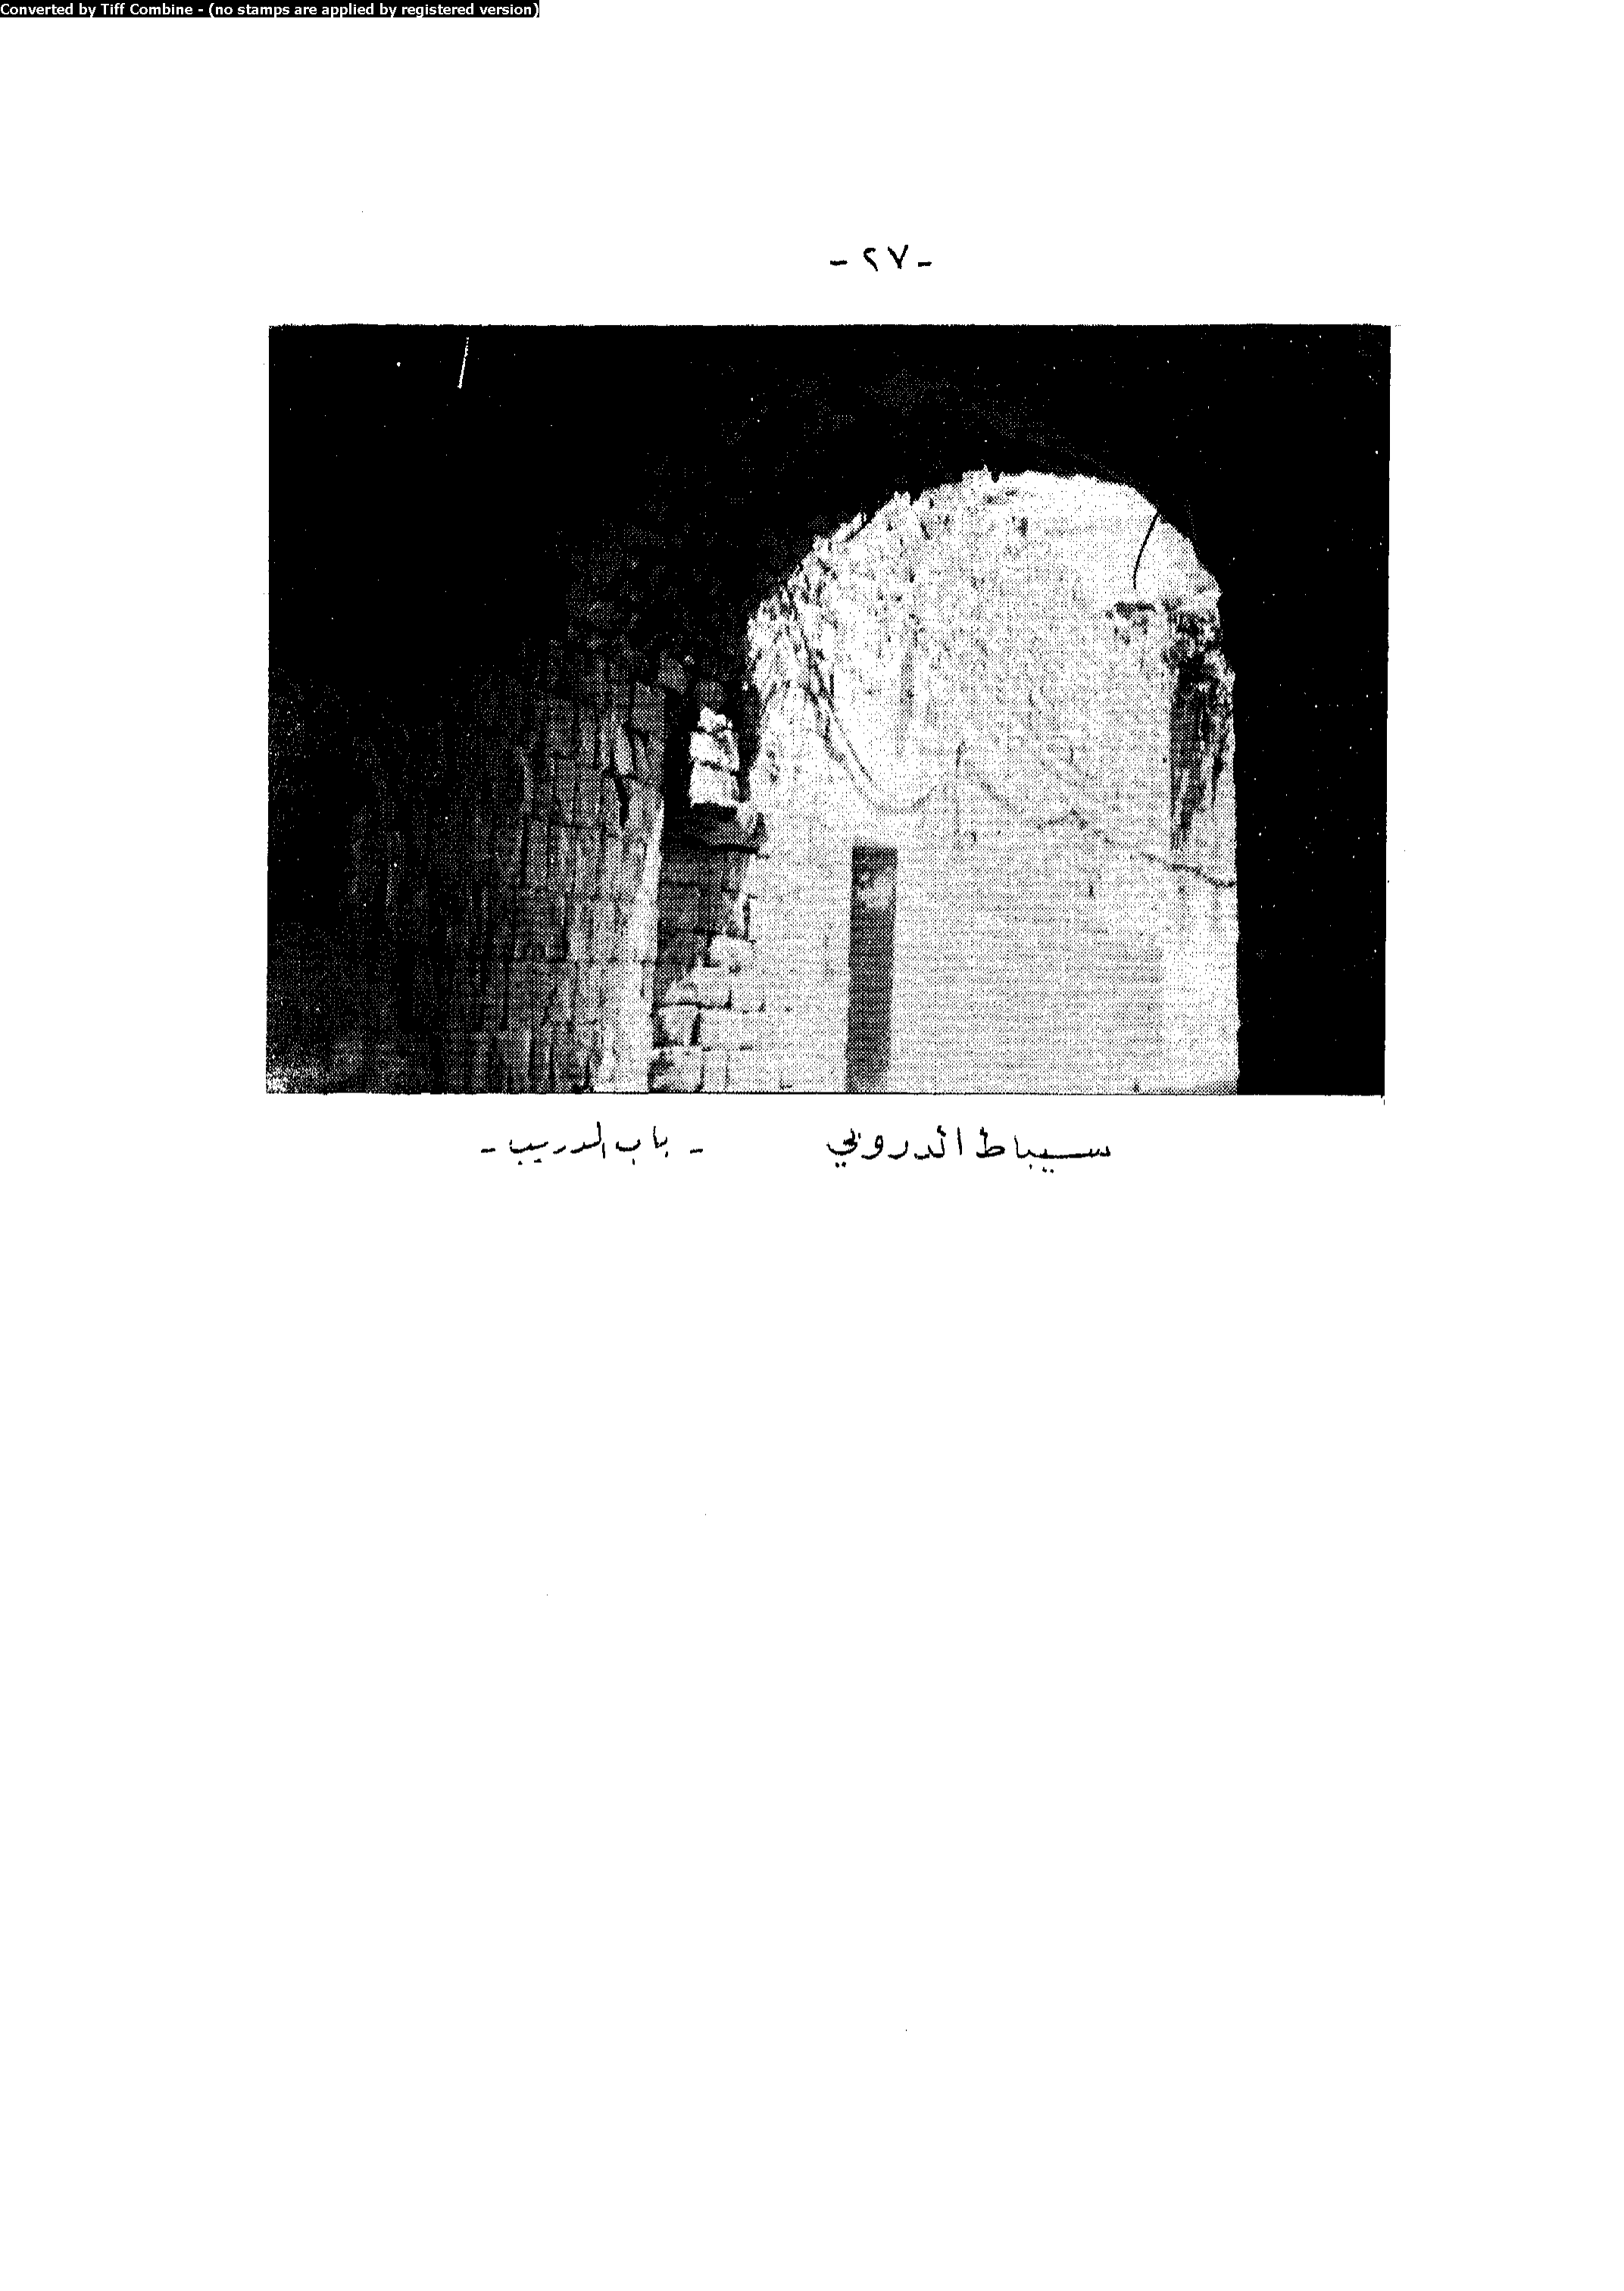 Converted by Tiff Combine - (no stamps are applied by registered version)
- ٢٧ -
سيباط الدروبي - باب الدريب -